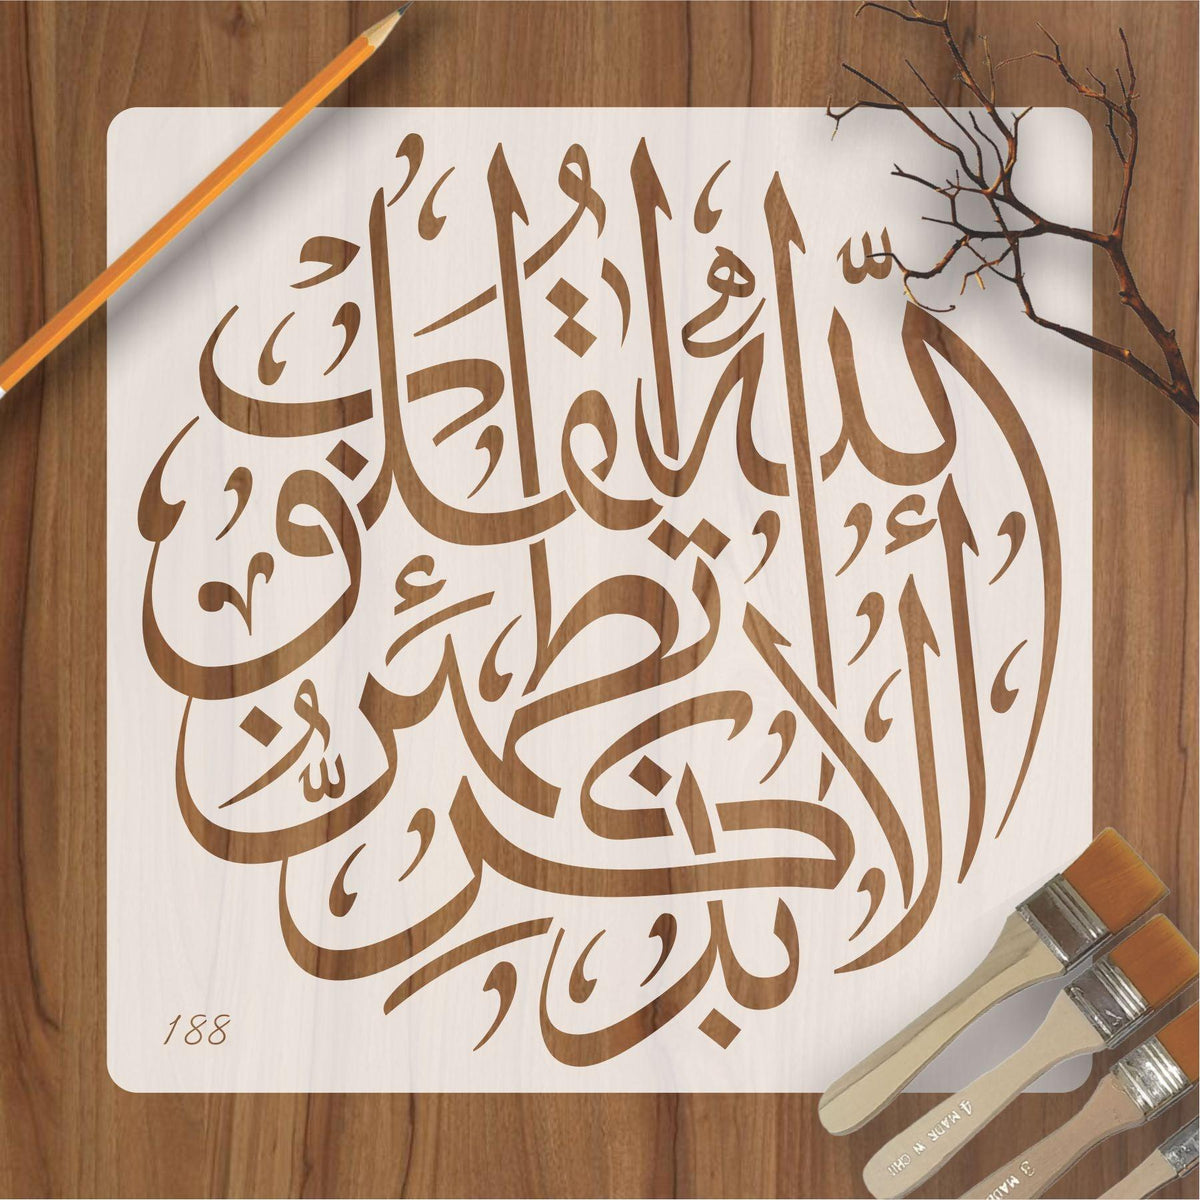 ألا بذكر الله تطمئن القلوب
188
4 MADE IN CHI
3 MADE